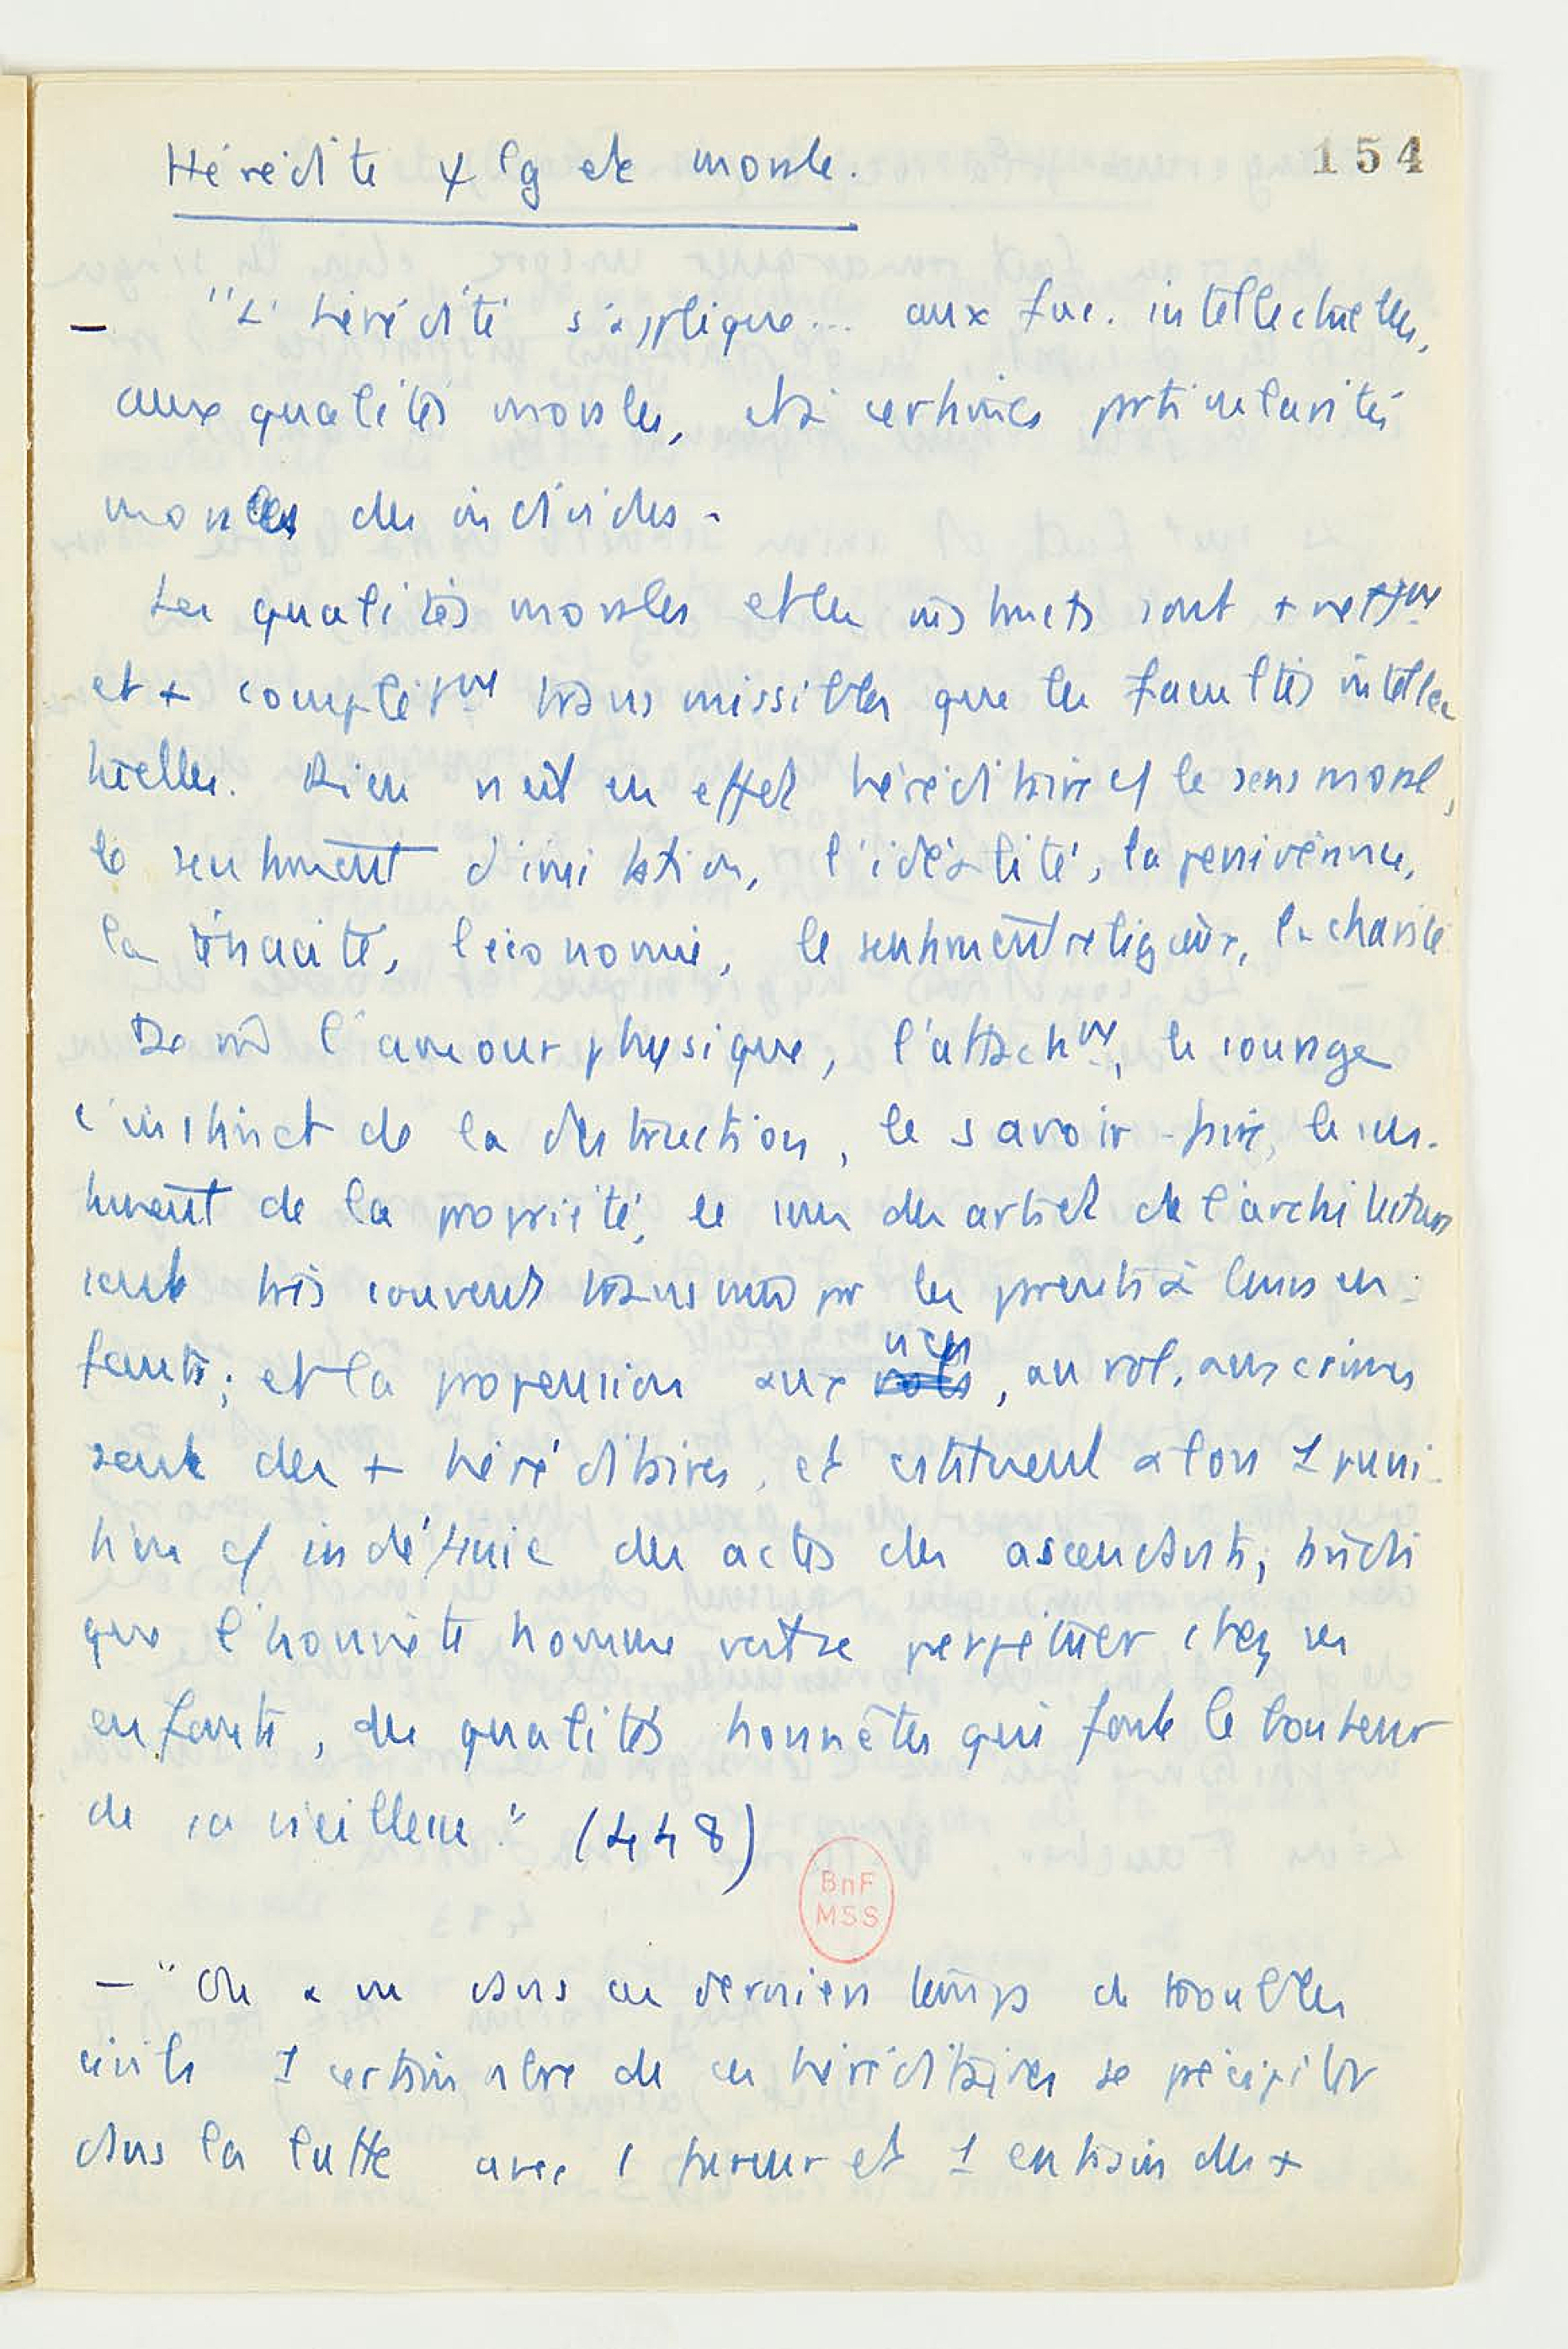 154
Hérédité ψlg et morale.
– "L'hérédité s'applique... aux fac. intellectuelles,
aux qualités morales, et à certaines particularités
morales des individus.
Les qualités morales et les instincts sont + nettmt
et + complètmt transmissibles que les facultés intellec
tuelles. Rien n'est en effet héréditaire c/ le sens moral,
le sentiment d'imitation, l'idéalité, la persivérance,
la ténacité, l'économie, le sentiment religieux, la charité
De m̂ l'amour physique, l'attachmt, le courage
l'instinct de la destruction, le savoir-faire, le sen-
timent de la propriété, le sens des arts et de l'architecture
sont très souvent transmis par les parents à leurs en-
fants; et la propension aux vols vices, au vol, aux crimes
sont des + héréditaires, et cstituent alors 1 puni-
tion c/ indéfinie des actes des ascendants, tandis
que l'honnête homme verra se perpétuer chez ses
enfants, des qualités honnêtes qui font le bonheur
de sa vieillesse." (448)
BnF
MSS
– "On a vu dans ces derniers temps de troubles
civils 1 certain nbre de ces héréditaires se précipiter
dans la lutte avec 1 fureur et 1 entrain des +